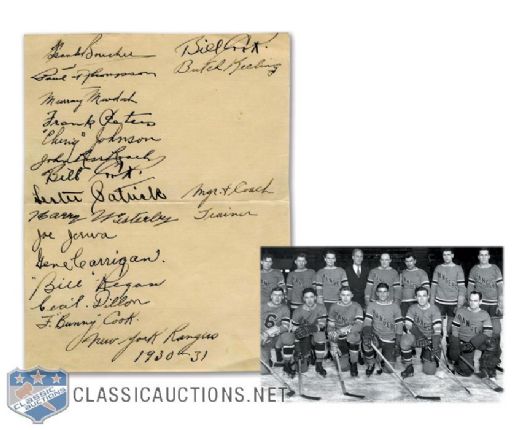 Frank Boucher
Paul Thompson
Murray Murdoch
Frank Peters
"Ching" Johnson
John Ross Roach
Bill Cook.
Lester Patrick Mgr. & Coach
Harry Westerby Trainer
Joe Jerwa
Gene Carrigan.
"Bill" Regan
Cecil Dillon
F. "Bunny" Cook.
New York Rangers
1930-31
Bill Cook.
Butch Keeling
CLASSIC
AUCTIONS
CLASSICAUCTIONS.NET